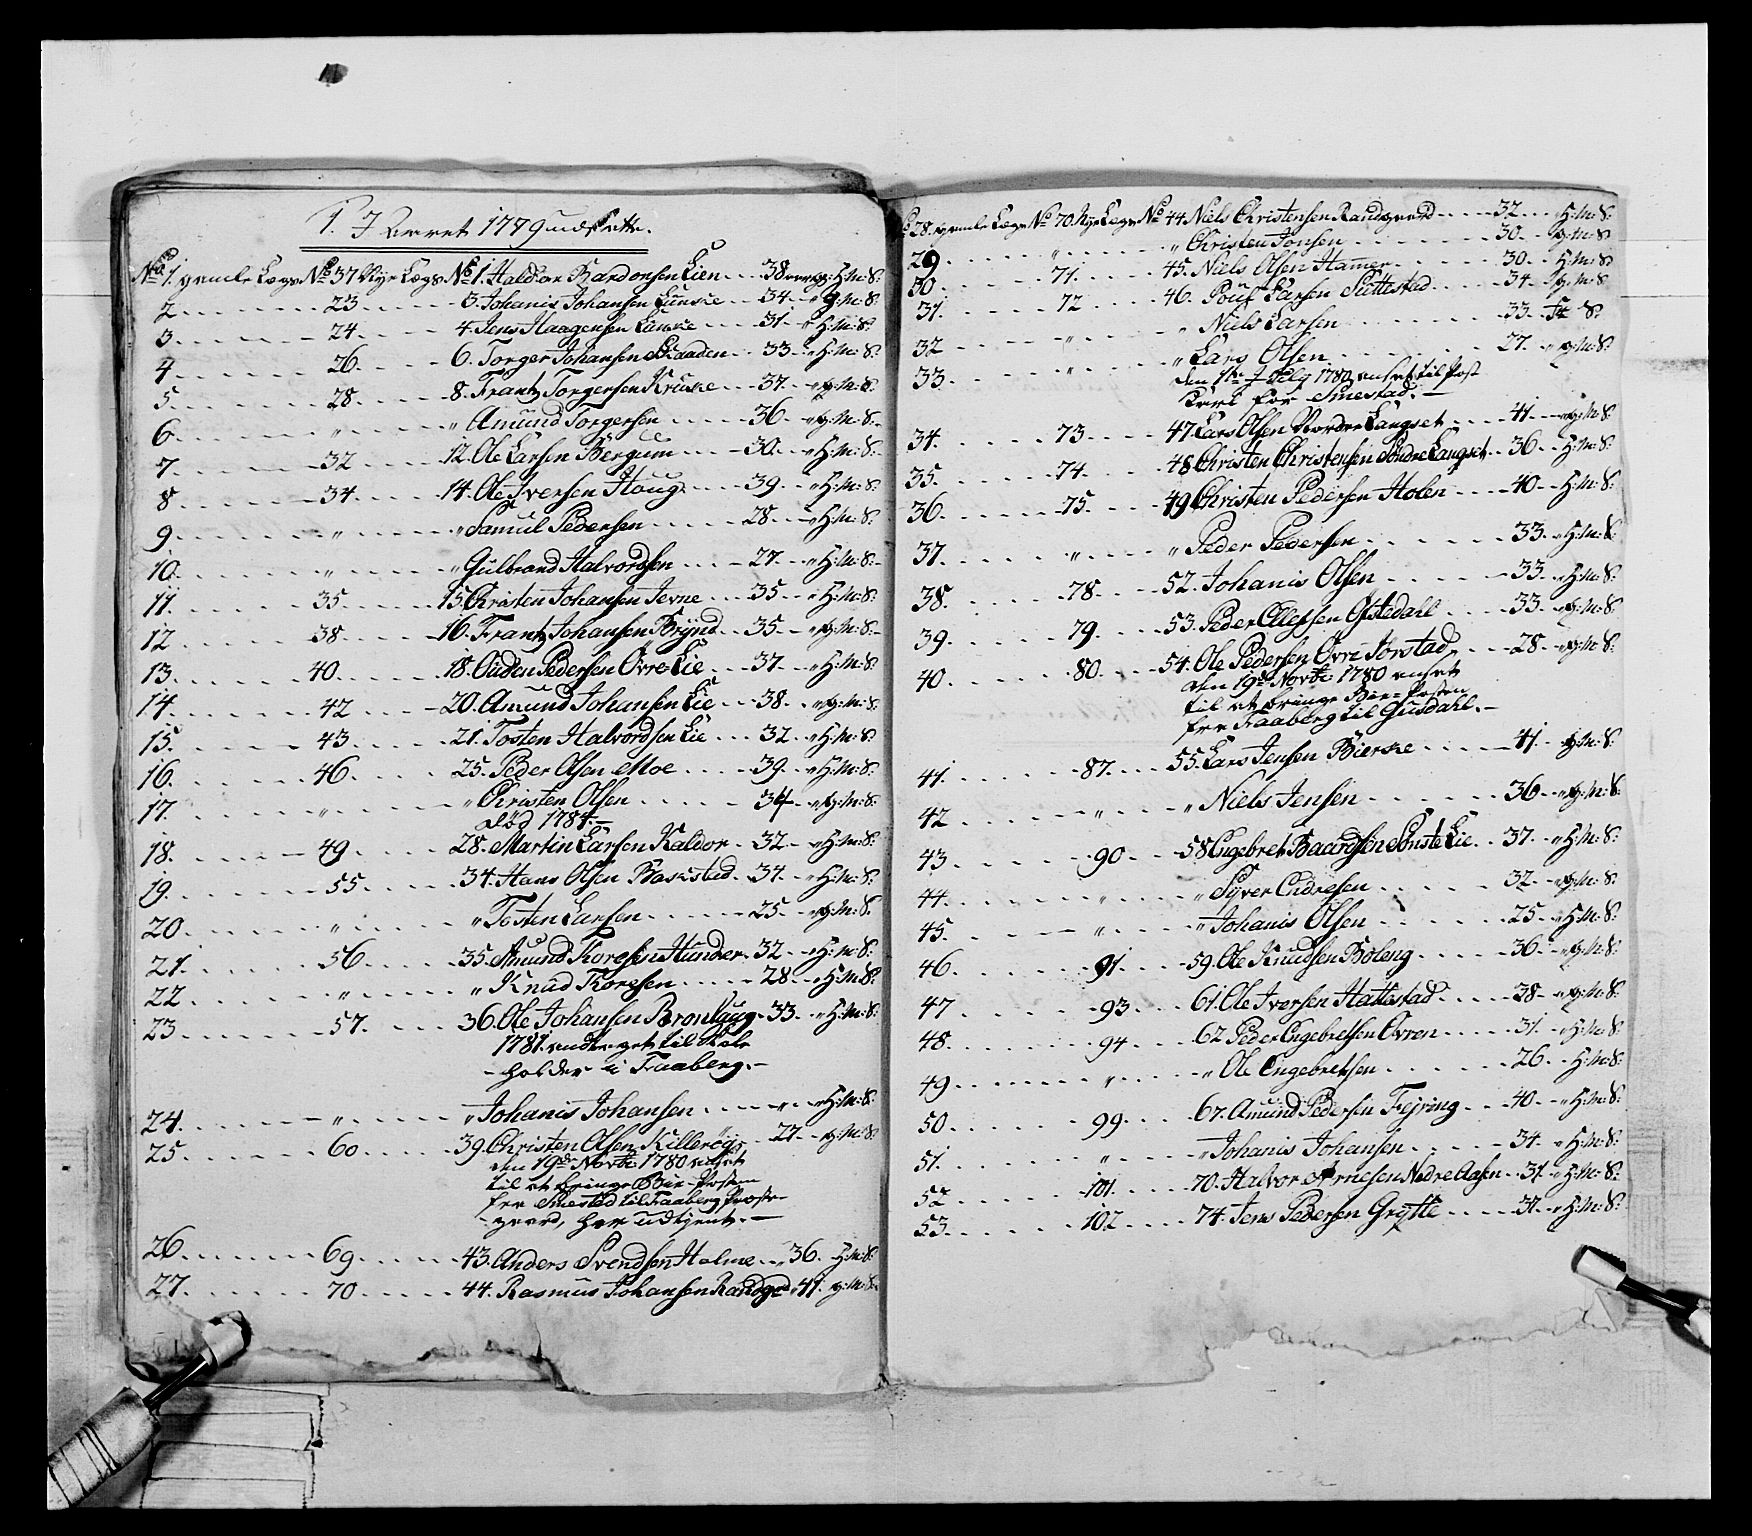 1. I Aaret 1779 udsatte.
No 1. gamle Lægs No 37 Nye Lægs No 1. Haldor Bardonsen Lien 38 aar H: M: S:
2 23 3. Johanis Johansen 34 " g: M: S:
3 24 4. Jens Haagensen 31 " H: M: S:
4 26 6. Torger Johansen Braaden 33 " H: M: S:
5 28 8. Frantz Torgersen Kruke 37 " g: M: S:
6 " " Amund Torgersen 36 " g: M: S:
7 32 12. Ole Larsen Bergum 30 " H: M: S:
8 34 14. Ole Iversen Haug 39 " H: M: S:
9 " " Samuel Pedersen 28 " H: M: S:
10 " " Gulbrand Halvordsen 27 " H: M: S:
11 35 15. Christen Johansen Jevne 35 " H: M: S:
12 38 16. Frantz Johansen Brynd 35 " g: M: S:
13 40 18. Auden Pedersen Øvre Lie 37 " H: M: S:
14 42 20. Amund Johansen Lie 38 " g: M: S:
15 43 21. Tosten Halvordsen Lie 32 " H: M: S:
16 46 25. Peder Olsen Moe 39 " H: M: S:
17 " " Christen Olsen 34 " g: M: S:
død 1784.
18 49 28. Martin Larsen Kaldor 32 " H: M: S:
19 55 34. Hans Olsen Baskstad 34 " H: M: S:
20 " " Tosten Larsen 25 " g: M: S:
21 56 35. Amund Toresen Hunder 32 " H: M: S:
22 " " Knud Toresen 28 " H: M: S:
23 57 36. Ole Johansen Bronlaug 33 " H: M: S:
1781 antaget til Skole
holder i Faaberg.
24 " " Johanis Johansen " H: M: S:
25 60 39. Christen Olsen Killerøig 27 g: M: S:
den 19de Novbr 1780 ansat
til at bringe Bie-Posten
fra Smestad til Faaberg Præste-
gaard, har udtjent.
26 69 43. Anders Svendsen Holme 36 H: M: S:
27 70 44. Rasmus Johansen Randgd 41 g: M: S:
No 28. gamle Lægs No 70. Nye Lægs No 44. Niels Christensen Randgaard 32 H: M: S:
29 " " Christen Jonsen 30 g: M: S:
30 71 45. Niels Olsen Hamer 30 H: M: S:
31 72 46. Poul Larsen Suttestad 34 g: M: S:
32 " " Niels Larsen 33 S:
33 " " Lars Olsen 27 " g: M: S:
den 1780 ansat til Post
Karl for Smestad.
34 73 47. Lars Olsen Nordre Langset 41 g: M: S:
35 74 48. Christen Christensen Søndre Langset 36 H: M: S:
36 75 49. Christen Pedersen Holen 40 H: M: S:
37 " " Peder Pedersen 33 " H: M: S:
38 78 52. Johanis Olsen 33 " H: M: S:
39 79 53. Peder Ellefsen Ofstedahl 33 " g: M: S:
40 80 54. Ole Pedersen Øvre Jørstad 28 " g: M: S:
den 19de Novbr 1780 ansat
til at bringe Bie-Posten
fra Faaberg til Gusdahl.
41 87 55. Lars Jensen Bierke 41 g: M: S:
42 " " Niels Jensen 36 " g: M: S:
43 90 58 Engebret Baardsen Sønste Lie 37 " H: M: S:
44 " " Syver Endresen 32 " g: M: S:
45 " " Johanis Olsen 25 " H: M: S:
46 91 59. Ole Knudsen Boleng 36 " g: M: S:
47 93 61. Ole Iversen Hattestad 38 " g: M: S:
48 94 62 Peder Engebretsen Øvren 31 " H: M: S:
49 " " Ole Engebretsen 26 H: M: S:
50 99 67. Amund Pedersen Fejring 40 " H: M: S:
51 " " Johanis Johansen 34 " H: M: S:
52 101 70. Halvor Arnesen Nedre Aasen 31 " H: M: S:
53 102 74. Jens Pedersen Grytte 31 " H: M: S: